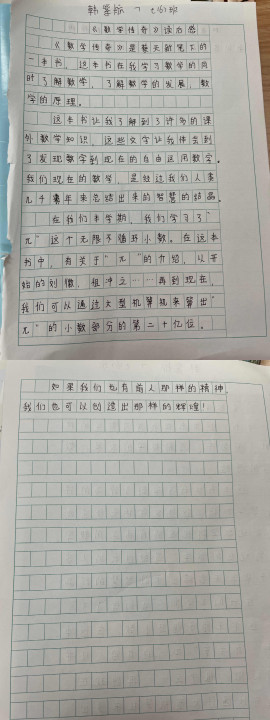 《数学传奇》读后感
《数学传奇》是蔡天新笔下的
一本书，这本书在我学习数学的同
时了解数学，了解数学的发展，数
学的原理。
这本书让我了解到了许多的课
外数学知识，这些文字让我体会到
了发现数学到现在的自由运用数学。
我们现在的数学，是经过我们人类
几千年来总结出来的智慧的结晶。
在我们本学期，我们学习了"
π"这个无限不循环小数。在这本
书中，有关于"π"的介绍，以开
始的刘徽，祖冲之……再到现在，
我们可以通过大型机算机来算出"
π"的小数部分的第二十亿位。
如果我们也有前人那样的精神，
我们也可以创造出那样的辉煌！